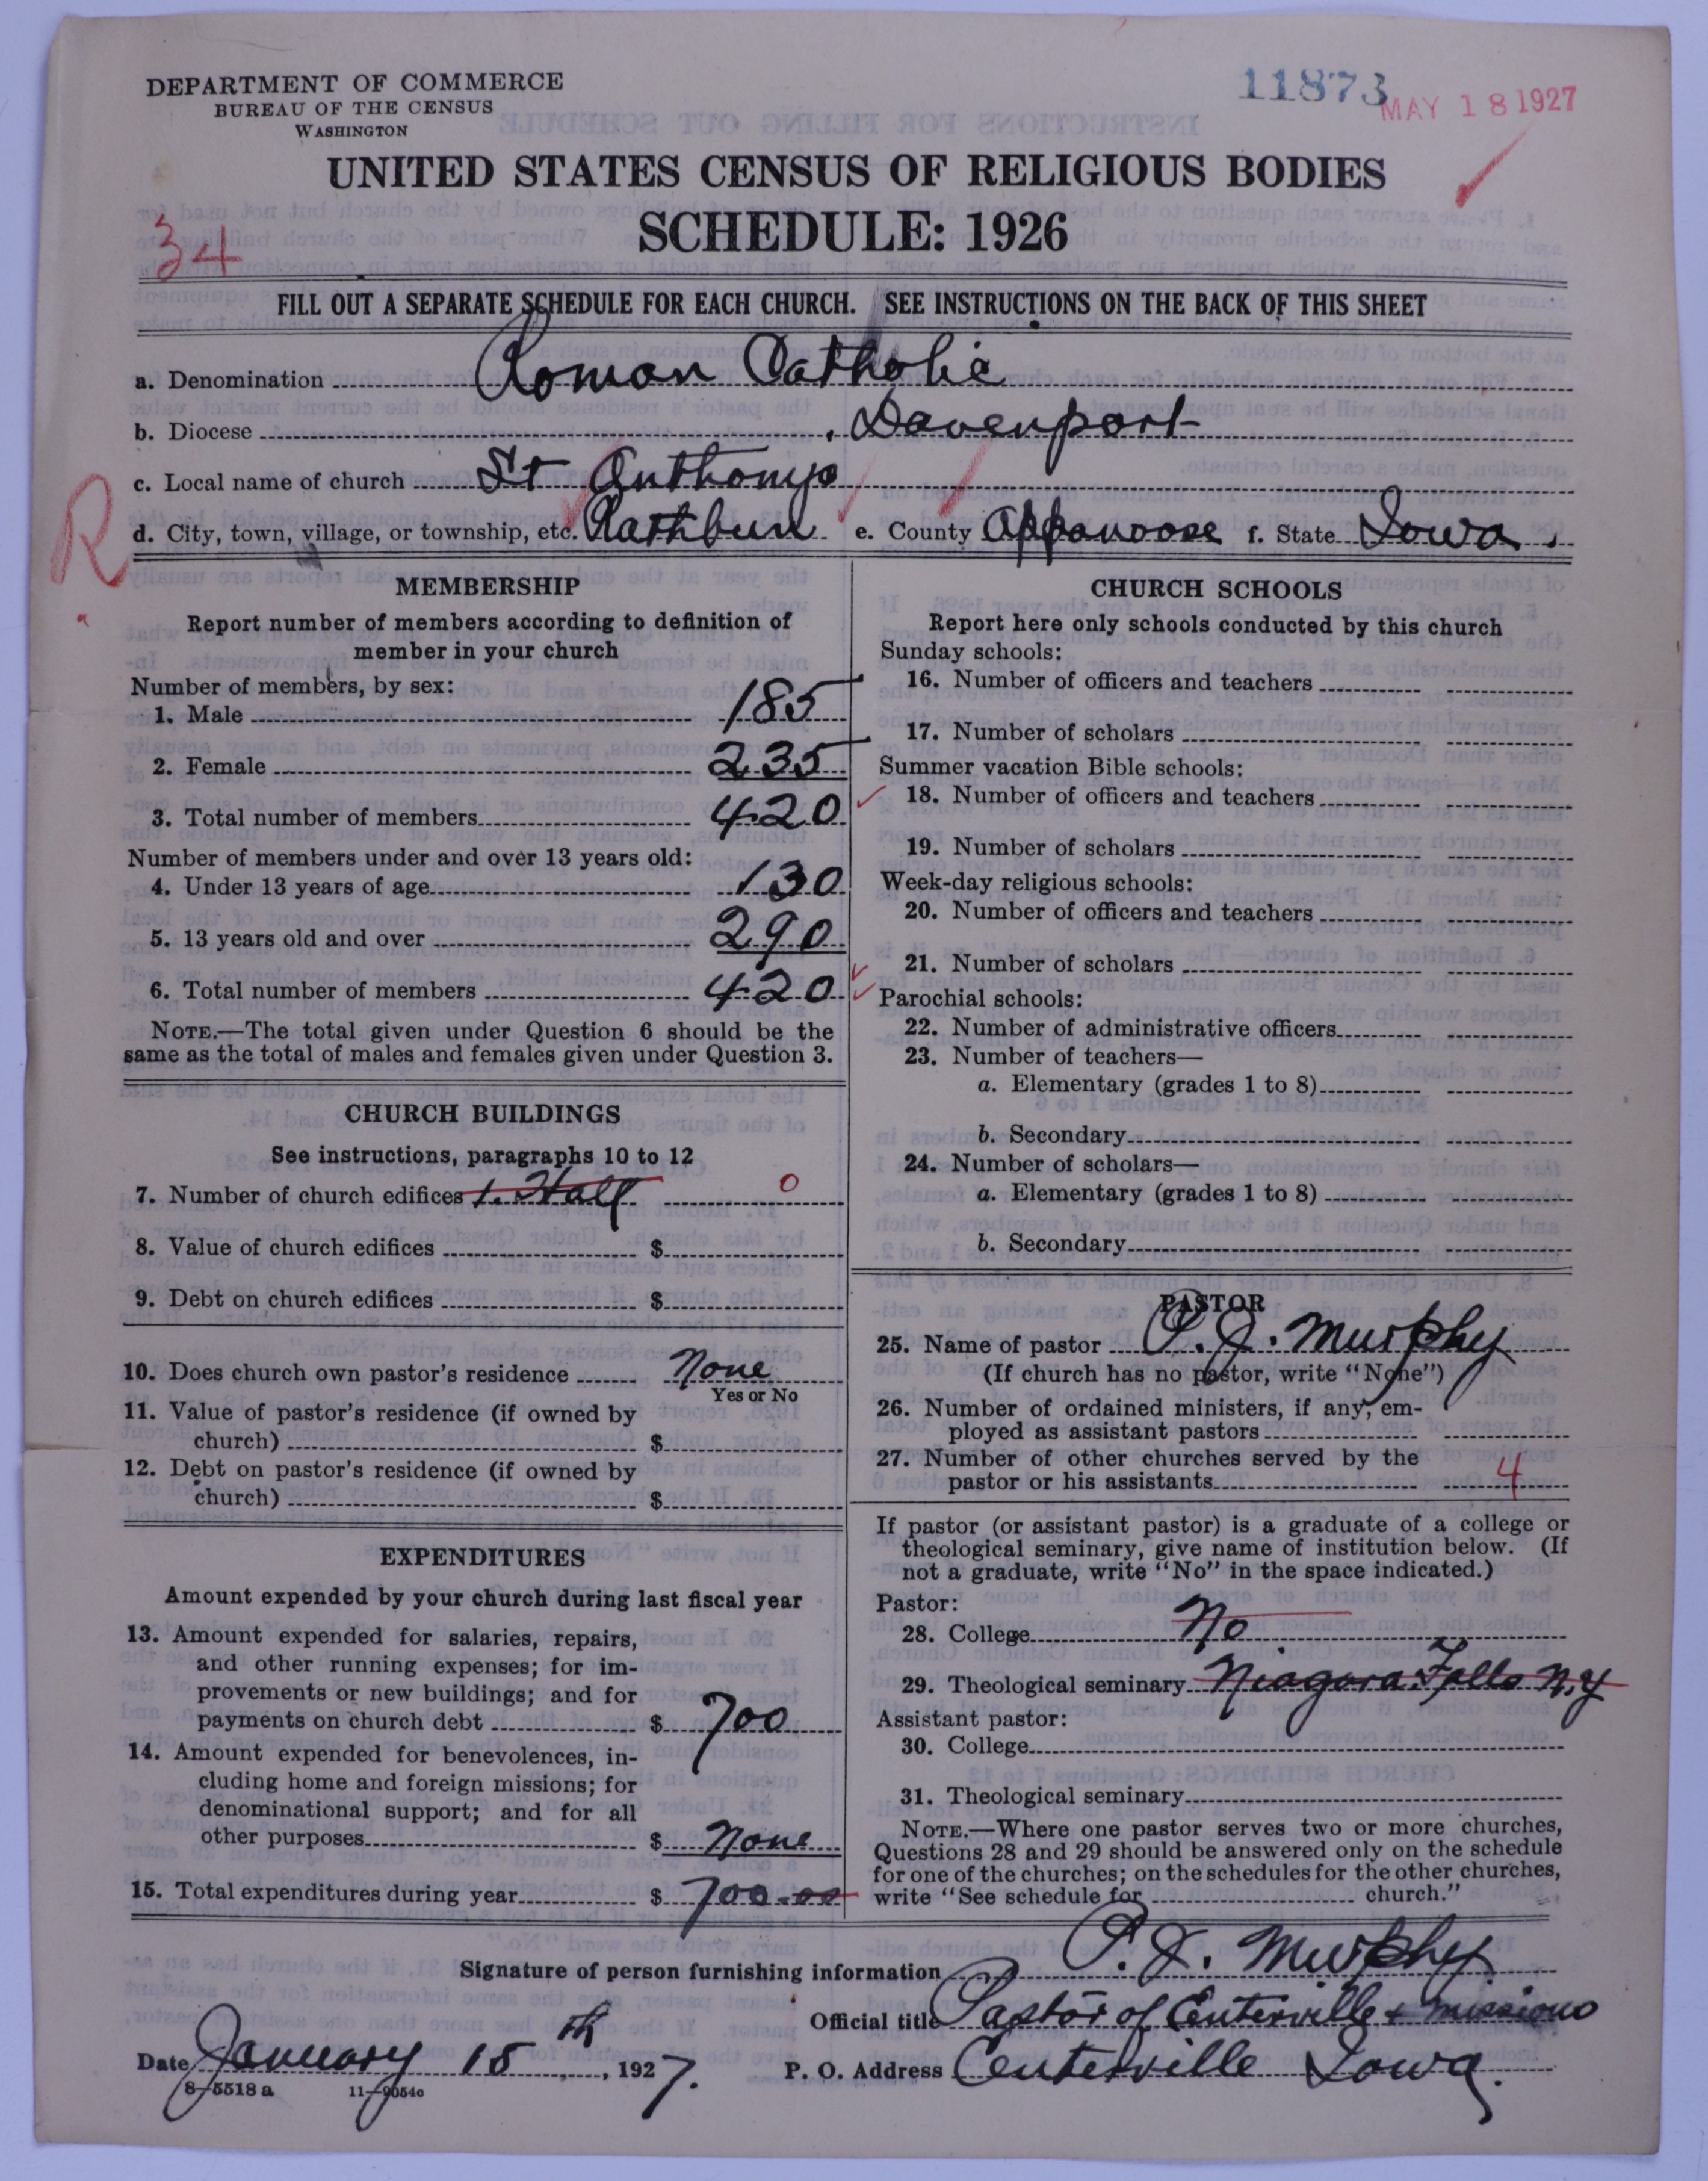 DEPARTMENT OF COMMERCE
BUREAU OF THE CENSUS
WASHINGTON
11873
MAY 18 1927
UNITED STATES CENSUS OF RELIGIOUS BODIES
SCHEDULE: 1926
34
FILL OUT A SEPARATE SCHEDULE FOR EACH CHURCH. SEE INSTRUCTIONS ON THE BACK OF THIS SHEET
a. Denomination Roman Catholic
b. Diocese Davenport
c. Local name of church St Anthonys
R
d. City, town, village, or township, etc. Rathbun e. County Appanoose f. State Iowa.
MEMBERSHIP
Report number of members according to definition of
member in your church
Number of members, by sex:
1. Male 185
2. Female 235
3. Total number of members 420
Number of members under and over 13 years old:
4. Under 13 years of age 130
5. 13 years old and over 290
6. Total number of members 420
NOTE.—The total given under Question 6 should be the
same as the total of males and females given under Question 3.
CHURCH BUILDINGS
See instructions, paragraphs 10 to 12
7. Number of church edifices 1. Hall 0
8. Value of church edifices $
9. Debt on church edifices $
10. Does church own pastor's residence None
Yes or No
11. Value of pastor's residence (if owned by
church) $
12. Debt on pastor's residence (if owned by
church) $
EXPENDITURES
Amount expended by your church during last fiscal year
13. Amount expended for salaries, repairs,
and other running expenses; for im-
provements or new buildings; and for
payments on church debt $ 700
14. Amount expended for benevolences, in-
cluding home and foreign missions; for
denominational support; and for all
other purposes $ None
15. Total expenditures during year $ 700.00
CHURCH SCHOOLS
Report here only schools conducted by this church
Sunday schools:
16. Number of officers and teachers
17. Number of scholars
Summer vacation Bible schools:
18. Number of officers and teachers
19. Number of scholars
Week-day religious schools:
20. Number of officers and teachers
21. Number of scholars
Parochial schools:
22. Number of administrative officers
23. Number of teachers—
a. Elementary (grades 1 to 8)
b. Secondary
24. Number of scholars—
a. Elementary (grades 1 to 8)
b. Secondary
PASTOR
25. Name of pastor P. J. Murphy
(If church has no pastor, write "None")
26. Number of ordained ministers, if any, em-
ployed as assistant pastors
27. Number of other churches served by the
pastor or his assistants 4
If pastor (or assistant pastor) is a graduate of a college or
theological seminary, give name of institution below. (If
not a graduate, write "No" in the space indicated.)
Pastor:
28. College No
29. Theological seminary Niagara Falls N.Y
Assistant pastor:
30. College
31. Theological seminary
NOTE.—Where one pastor serves two or more churches,
Questions 28 and 29 should be answered only on the schedule
for one of the churches; on the schedules for the other churches,
write "See schedule for church."
Signature of person furnishing information P. J. Murphy
Official title Pastor of Centerville + missions
Date January 15th, 1927. P. O. Address Centerville Iowa.
8-5518 a 11-9054c